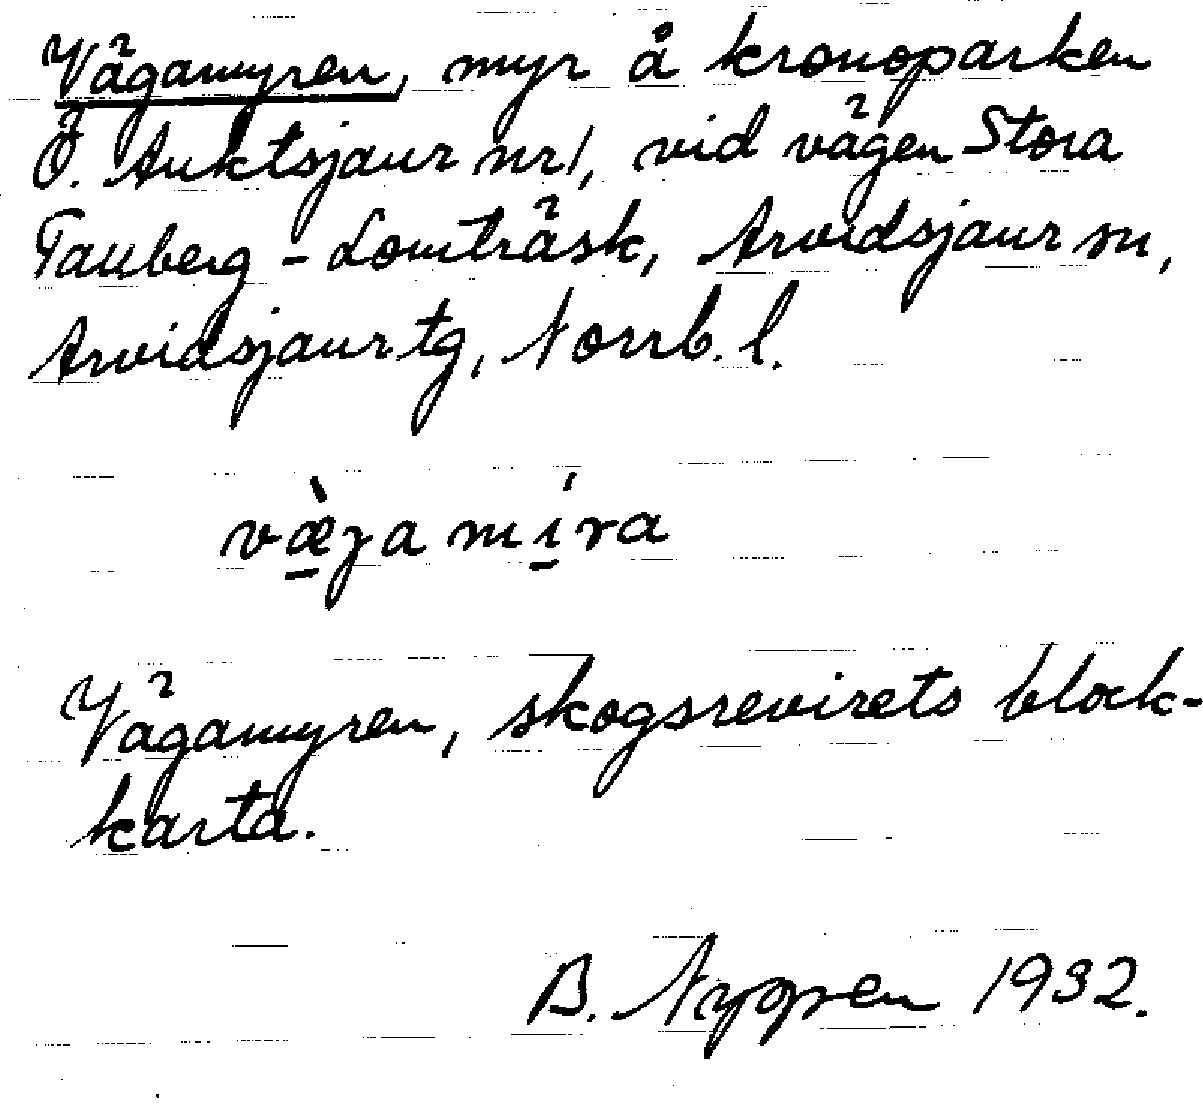 Vägamyren, myr å kronoparken
Ö. Auktsjaur nr 1, vid vägen Stora
Tauberg - Lomträsk, Arvidsjaur sn,
Arvidsjaur tg, Norrb. l.
væ̱̀ga mí̱ra
Vägamyren, skogsrevirets block-
karta.
B. 1932.